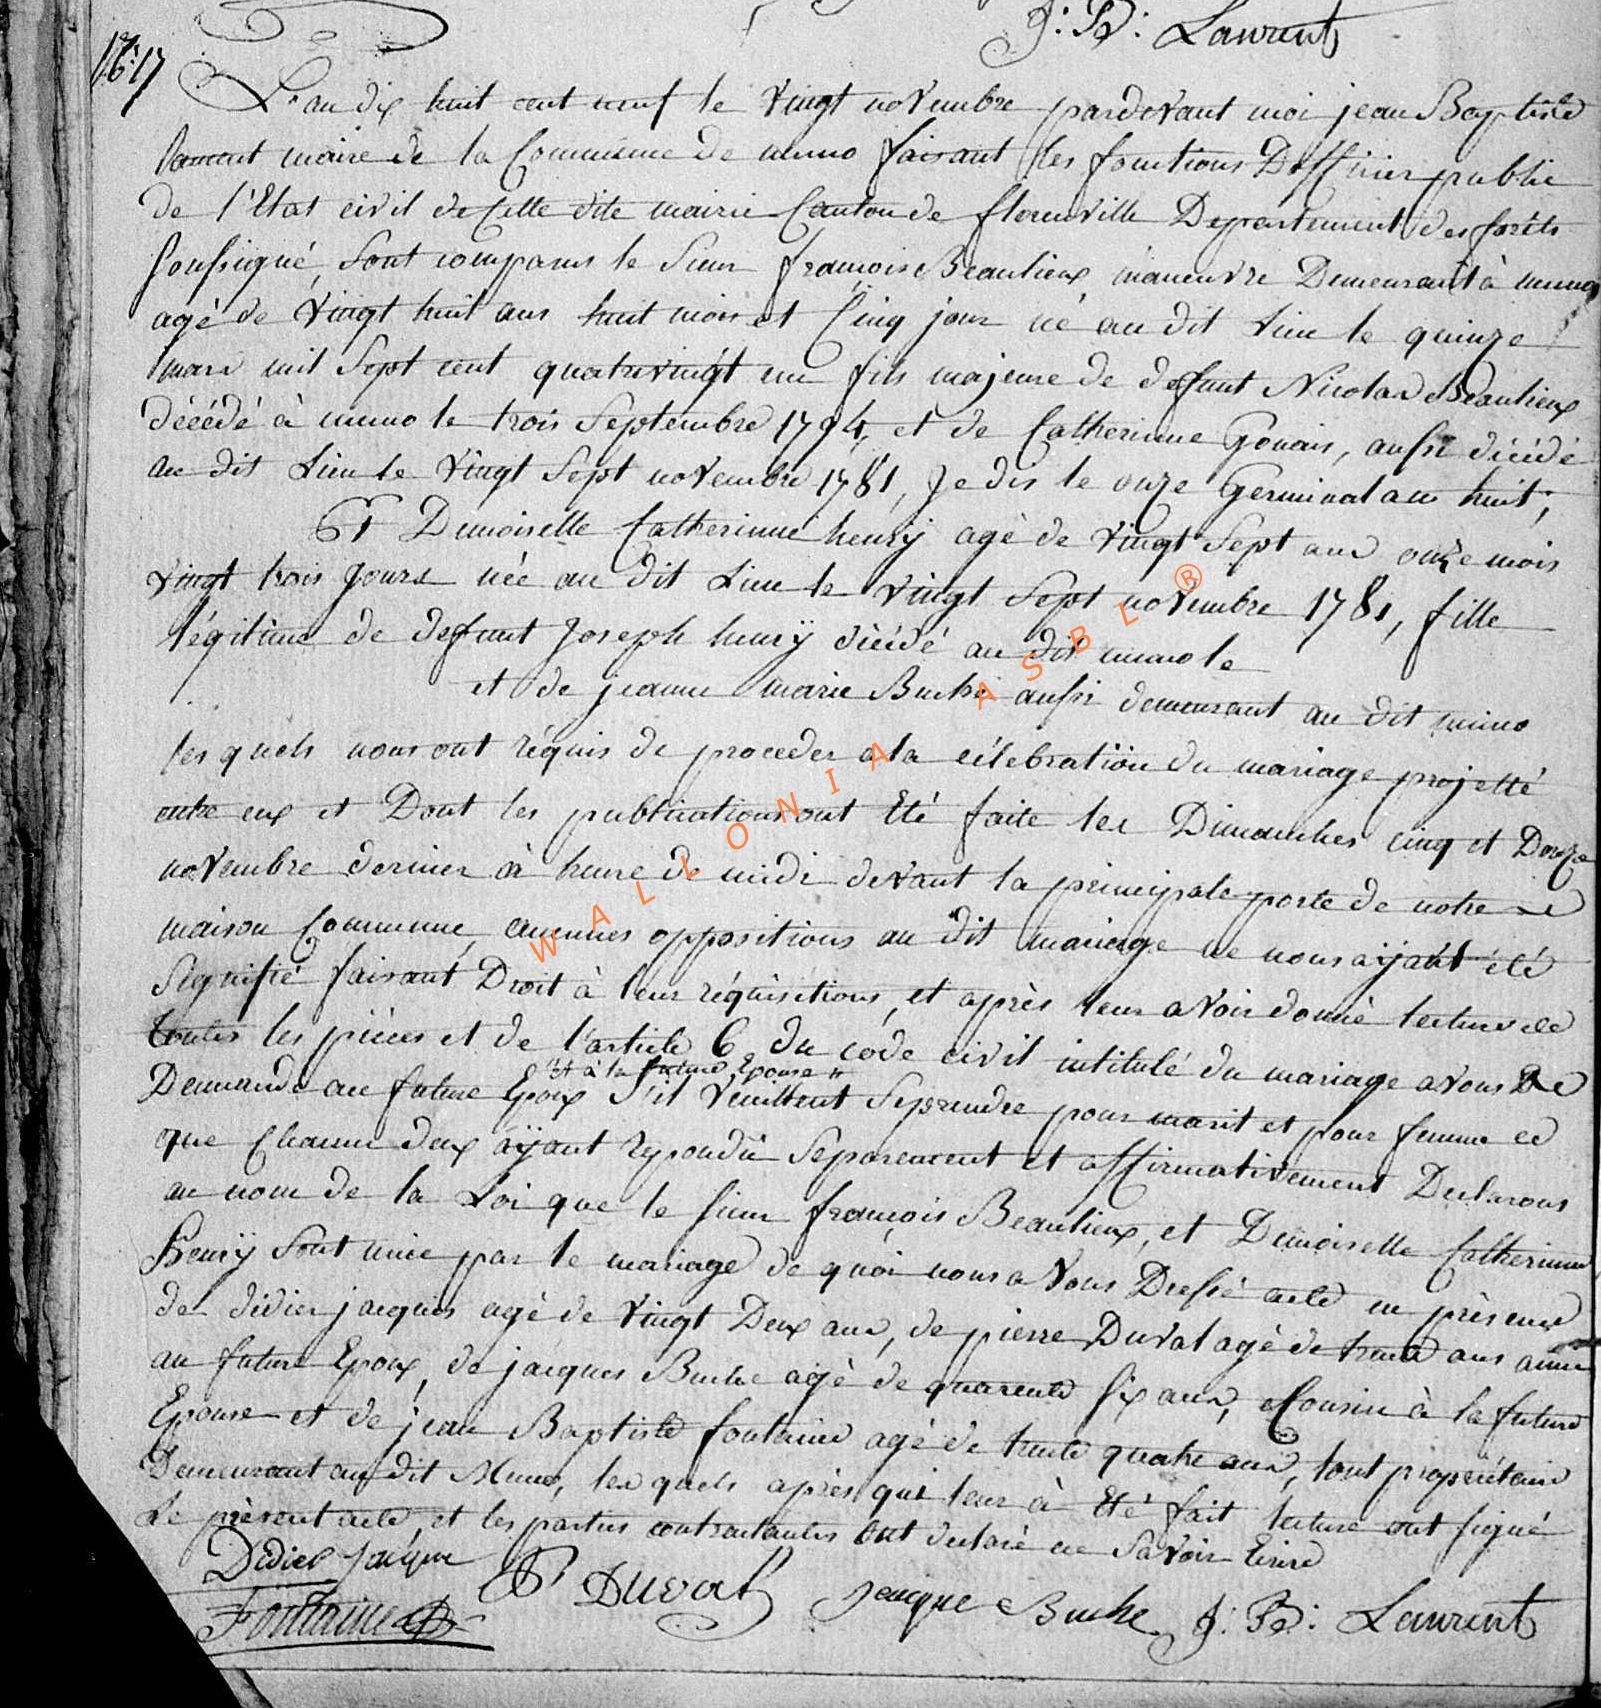 J: B: Laurent
17
L'an dix huit cent neuf le vingt novembre pardevant moi jean Baptiste
laurent maire de la Commune de muno faisant les fonctions D'officier public
de l'Etat civil de Cette dite mairie Canton de florenville Departement des forêts
soussigné, sont comparus le sieur françois Beaulieux maneuvre Demeurant à muno
agé de vingt huit ans huit mois et Cinq jour né au dit Lieu le quinze
mars mil sept cent quatrevingt un fils majeure de defunt Nicolas Beaulieux
décédé à muno le trois Septembre 1794, et de Catherinne Gonais, aussi décédé
au dit Lieu le vingt sept novembre 1781, Je dis le onze Germinal an huit;
Et Demoiselle Catherinne henrÿ agé de vingt sept ans onze mois
vingt trois jours née au dit Lieu le vingt sept novembre 1781, fille
légitime de defunt Joseph henrÿ décédé au dit muno le
et de jeanne marie Buché aussi demeurant au dit muno
les quels nous ont réquis de proceder a la célébration du mariage projetté
entre eux et Dont les publications ont Eté faite les Dimanches cinq et Douze
novembre dernier à heure de midi devant la principale porte de notre
maison Commune, aucunes oppositions au dit mariage ne nous aijant été
signifié faisant Droit à leur réquisitions, et après leur avoir donné lecture de
toutes les pièces et de l'article 6 du code civil intitulé du mariage avons
et à la future Epouse
Demandé au future Epoux s'il veuillent se prendre pour marit et pour femme
que Chacun deux aÿant repondu separement et affirmativement Declarons
au nom de la Loi que le sieur françois Beaulieux, et Demoiselle Catherinne
henrÿ sont unie par le mariage de quoi nous avons Dressé acte en présence
de didier jacques agé de vingt Deux ans, de pierre Duval agé de trente ans amie
au future Epoux, de jacques Buché agé de quarente six ans, Cousin à la future
Epouse et de jean Baptiste fontaine agé de trente quatre ans, tout propriétaire
Demeurant au dit Muno, les quels après qui leur à Eté fait lecture ont signé
Le présent acte, et les parties contractantes ont declaré ne savoir Ecrire
Didier Jacque
P Duval
Jacque Buche
J: B: Laurent
Fontaine
WALLONIA ASBL ®